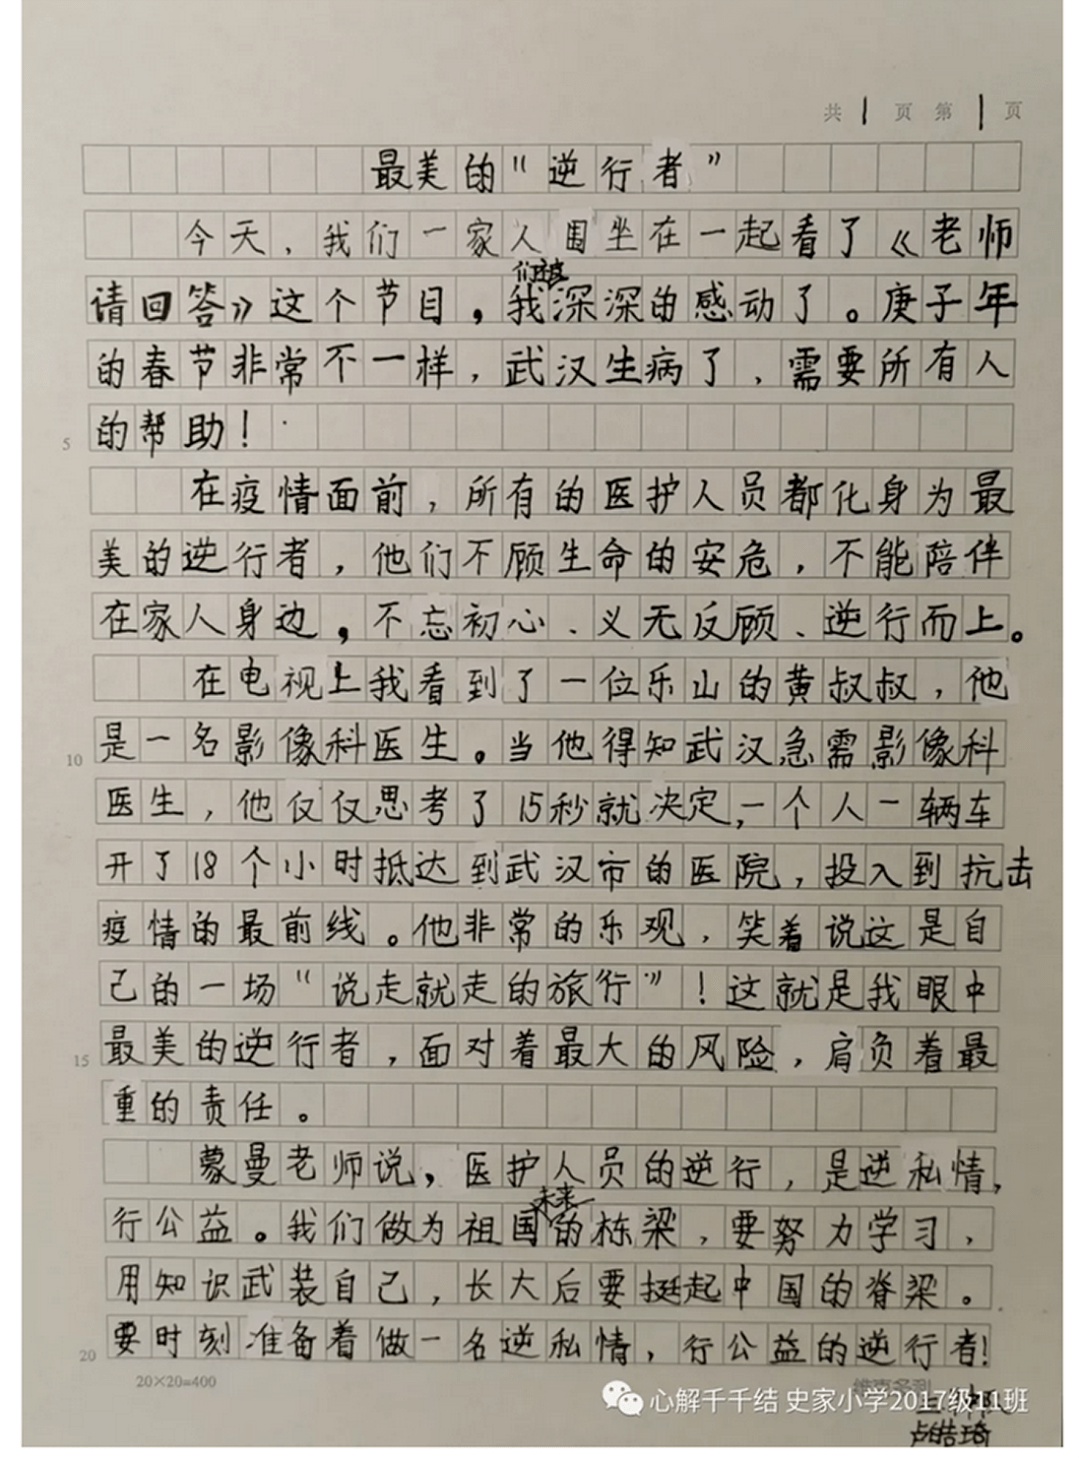 共1页第1页
最美的“逆行者”
今天，我们一家人围坐在一起看了《老师
们被
请回答》这个节目，我深深的感动了。庚子年
的春节非常不一样，武汉生病了，需要所有人
5 的帮助！
在疫情面前，所有的医护人员都化身为最
美的逆行者，他们不顾生命的安危，不能陪伴
在家人身边，不忘初心、义无反顾、逆行而上。
在电视上我看到了一位乐山的黄叔叔，他
10 是一名影像科医生。当他得知武汉急需影像科
医生，他仅仅思考了15秒就决定，一个人一辆车
开了18个小时抵达到武汉市的医院，投入到抗击
疫情的最前线。他非常的乐观，笑着说这是自
己的一场“说走就走的旅行”！这就是我眼中
15 最美的逆行者，面对着最大的风险，肩负着最
重的责任。
蒙曼老师说，医护人员的逆行，是逆私情，
未来
行公益。我们做为祖国的栋梁，要努力学习，
用知识武装自己，长大后要挺起中国的脊梁。
20 要时刻准备着做一名逆私情，行公益的逆行者！
20×20=400
心解千千结 史家小学2017级11班